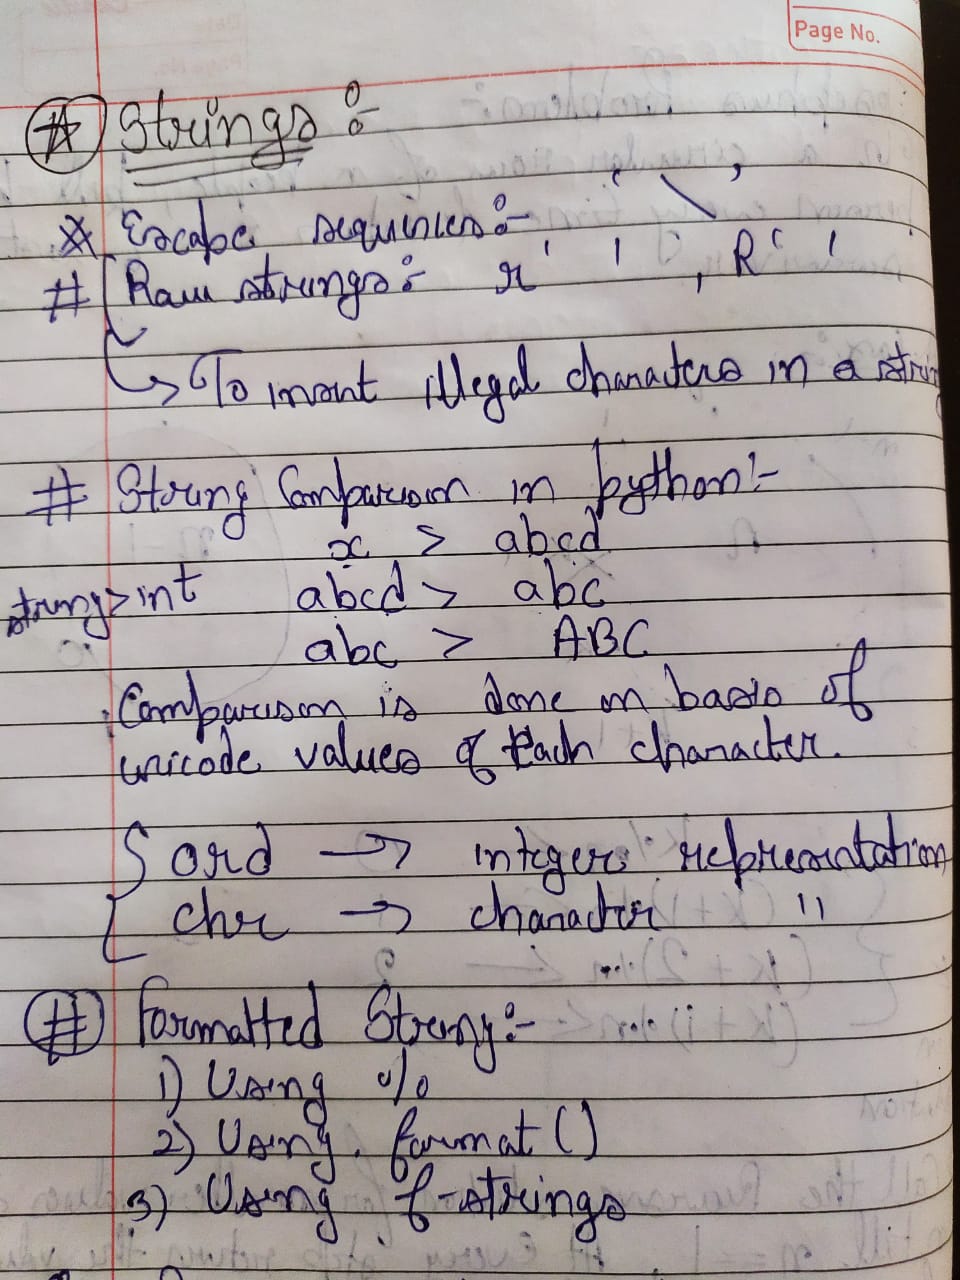 Page No.
Strings :-
* Escape sequences :- ' \ '
# Raw strings :- r' ' , R' '
→ To insert illegal characters in a string
# String Comparison in python :-
x > abcd
string > int abcd > abc
abc > ABC
Comparison is done on basis of
unicode values of each character.
ord → integer representation
chr → character "
# Formatted String :-
1) Using %
2) Using . format ()
3) Using f-strings